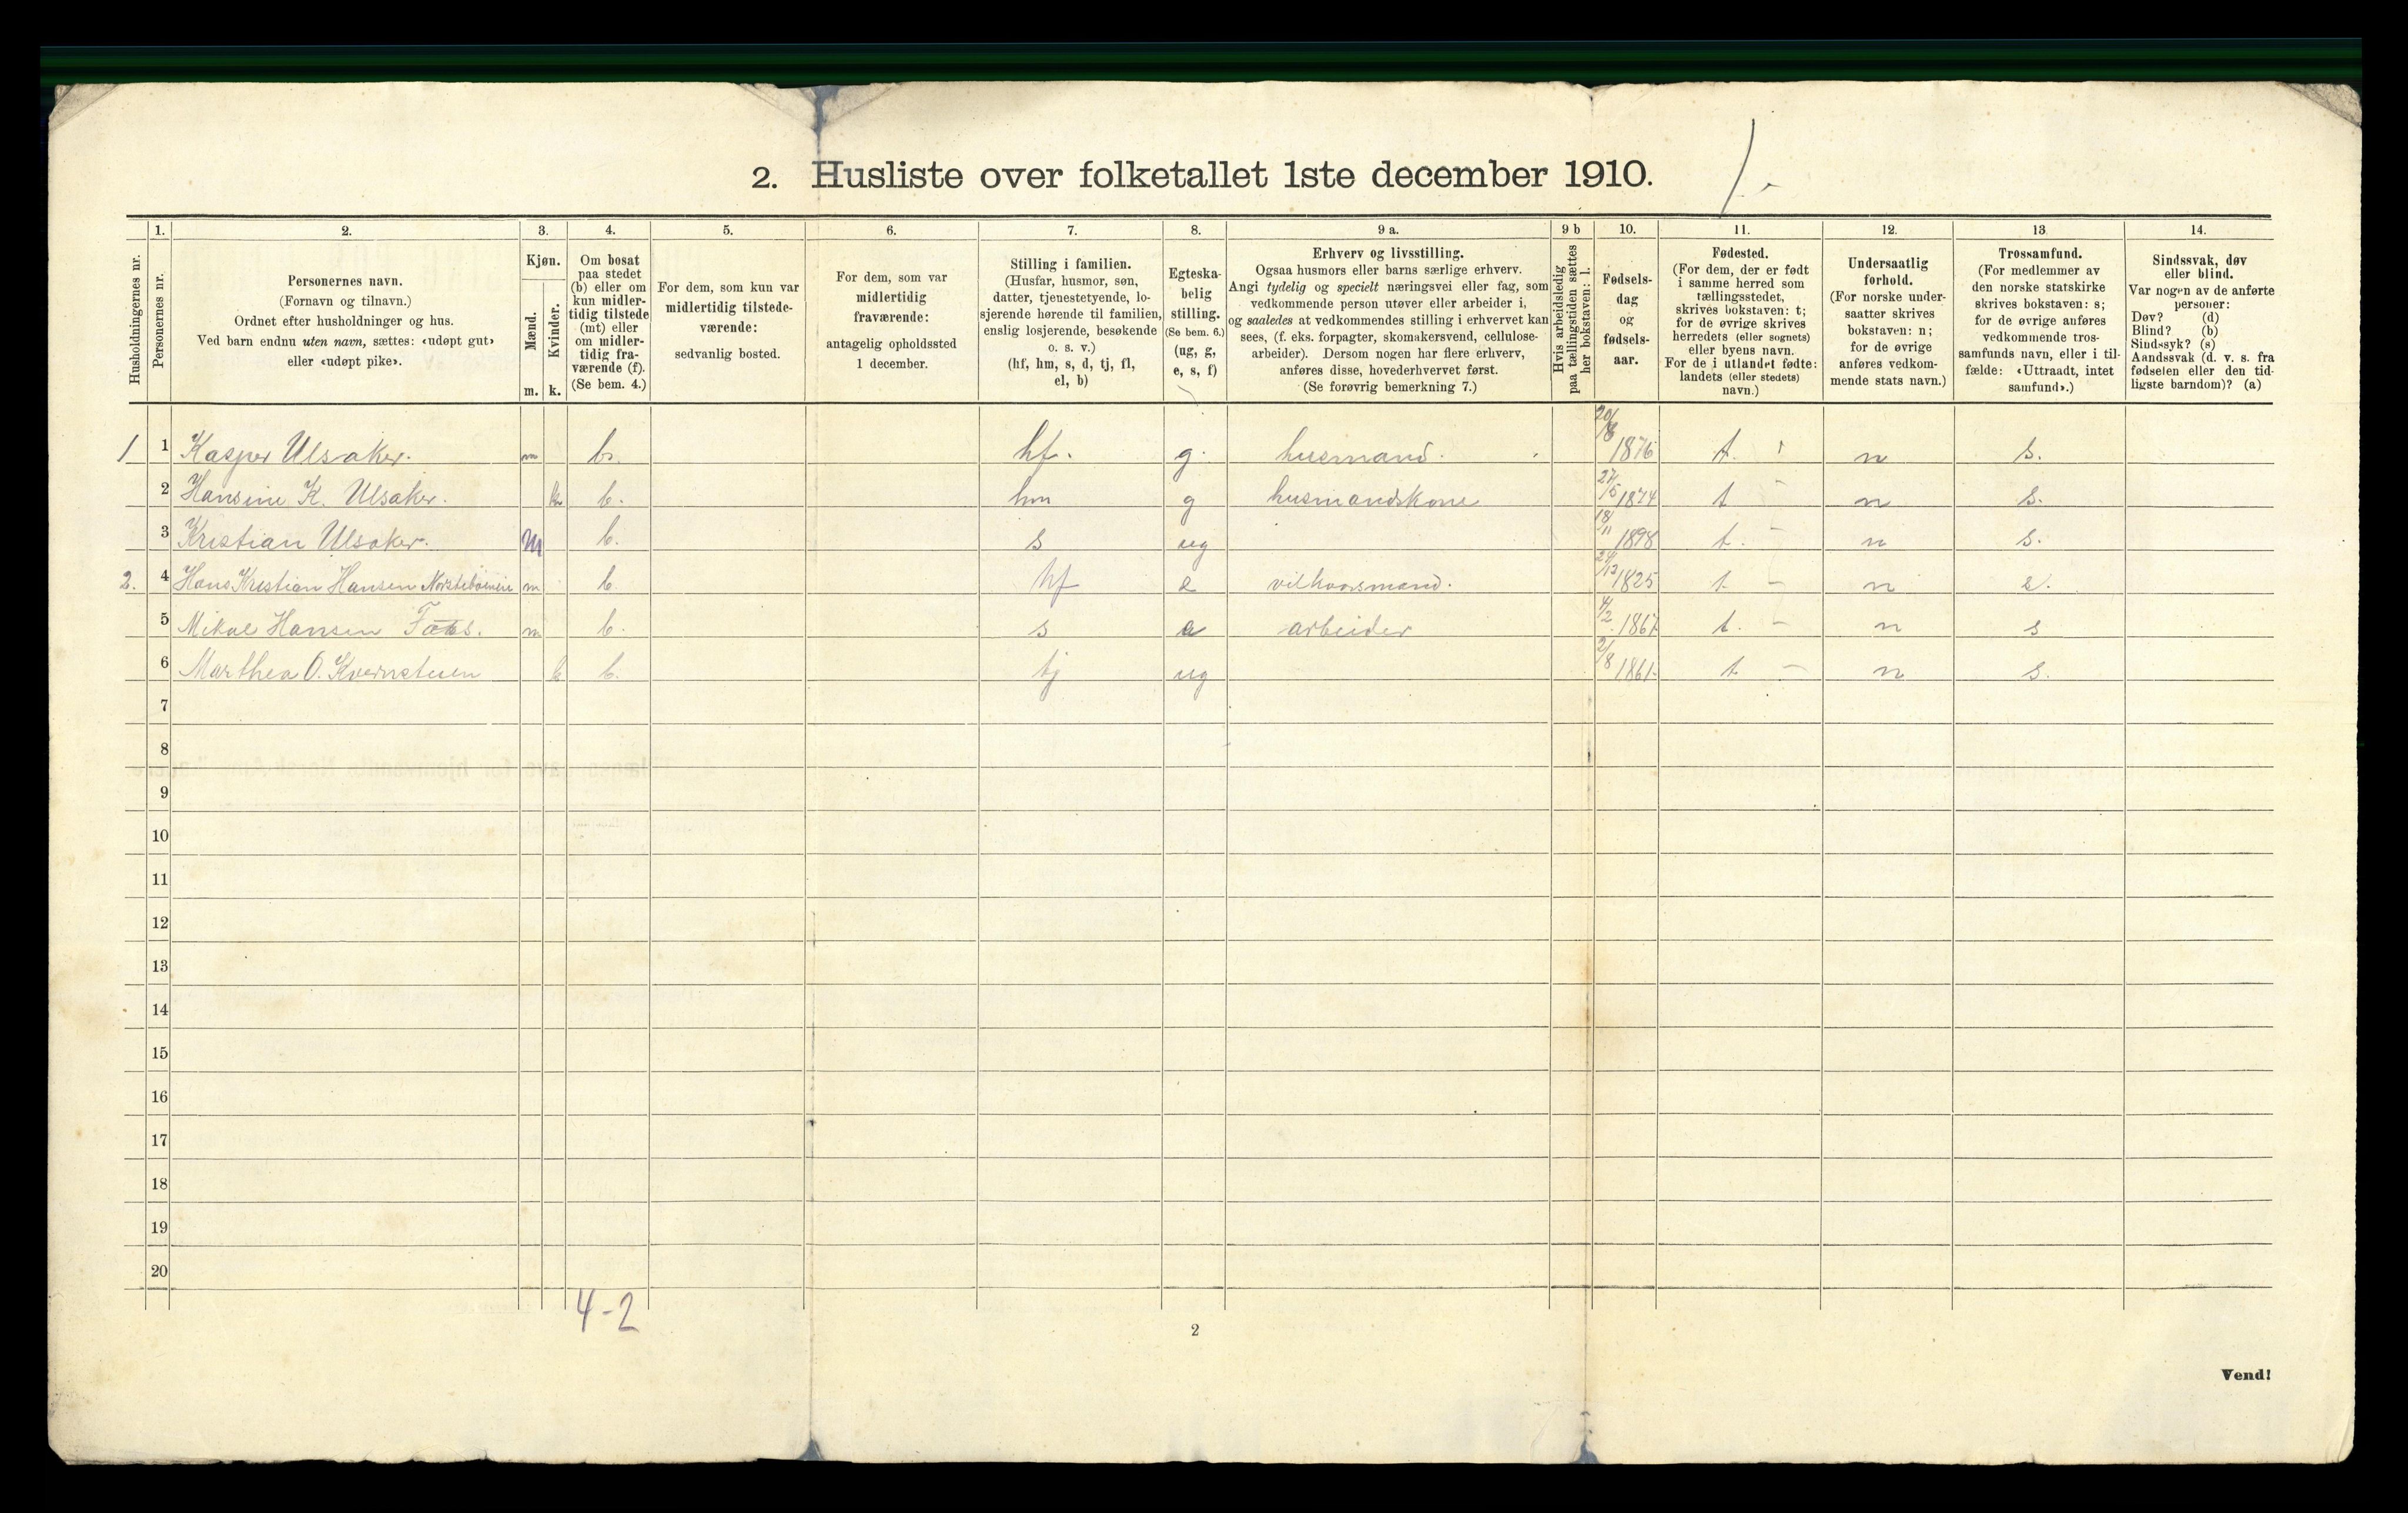 2. Husliste over folketallet 1ste december 1910.
1.
1. 2. 3. 4. 5. 6. 7. 8. 9 a. 9 b 10. 11. 12. 13. 14.
Husholdningernes nr.
Personernes nr.
Personernes navn.
(Fornavn og tilnavn.)
Ordnet efter husholdninger og hus.
Ved barn endnu uten navn, sættes: «udøpt gut»
eller «udøpt pike».
Kjøn.
Mænd.
m.
Kvinder.
k.
Om bosat
paa stedet
(b) eller om
kun midler-
tidig tilstede
(mt) eller
om midler-
tidig fra-
værende (f).
(Se bem. 4.)
For dem, som kun var
midlertidig tilstede-
værende:
sedvanlig bosted.
For dem, som var
midlertidig
fraværende:
antagelig opholdssted
1 december.
Stilling i familien.
(Husfar, husmor, søn,
datter, tjenestetyende, lo-
sjerende hørende til familien,
enslig losjerende, besøkende
o. s. v.)
(hf, hm, s, d, tj, fl,
el, b)
Egteska-
belig
stilling.
(Se bem. 6.)
(ug, g,
e, s, f)
Erhverv og livsstilling.
Ogsaa husmors eller barns særlige erhverv.
Angi tydelig og specielt næringsvei eller fag, som
vedkommende person utøver eller arbeider i,
og saaledes at vedkommendes stilling i erhvervet kan
sees, (f. eks. forpagter, skomakersvend, cellulose-
arbeider). Dersom nogen har flere erhverv,
anføres disse, hovederhvervet først.
(Se forøvrig bemerkning 7.)
Hvis arbeidsledig
paa tællingstiden sættes
her bokstaven: l.
Fødsels-
dag
og
fødsels-
aar.
Fødested.
(For dem, der er født
i samme herred som
tællingsstedet,
skrives bokstaven: t;
for de øvrige skrives
herredets (eller sognets)
eller byens navn.
For de i utlandet fødte:
landets (eller stedets)
navn.)
Undersaatlig
forhold.
(For norske under-
saatter skrives
bokstaven: n;
for de øvrige
anføres vedkom-
mende stats navn.)
Trossamfund.
(For medlemmer av
den norske statskirke
skrives bokstaven: s;
for de øvrige anføres
vedkommende tros-
samfunds navn, eller i til-
fælde: «Uttraadt, intet
samfund».)
Sindssvak, døv
eller blind.
Var nogen av de anførte
personer:
Døv? (d)
Blind? (b)
Sindssyk? (s)
Aandssvak (d. v. s. fra
fødselen eller den tid-
ligste barndom)? (a)
1 1 Kasper Ulsaker. m b. hf. g. husmand. 20/8 1876 t. n s.
2 Hansine K. Ulsaker. k b. hm g husmandskone 27/5 1874 t n s.
3 Kristian Ulsaker. m b. s ug 18/11 1898 t. n s.
2. 4 Hans Kristian Hansen m b. hf e 24/12 1825 t. n s.
5 Mikal Hansen m b. s e arbeider 4/2 1867 t. n s
6 Marthea O. Kvernstuen k b. tj ug 2/8 1861. t n s.
7
8
9
10
11
12
13
14
15
16
17
18
19
20
4-2
2
Vend!